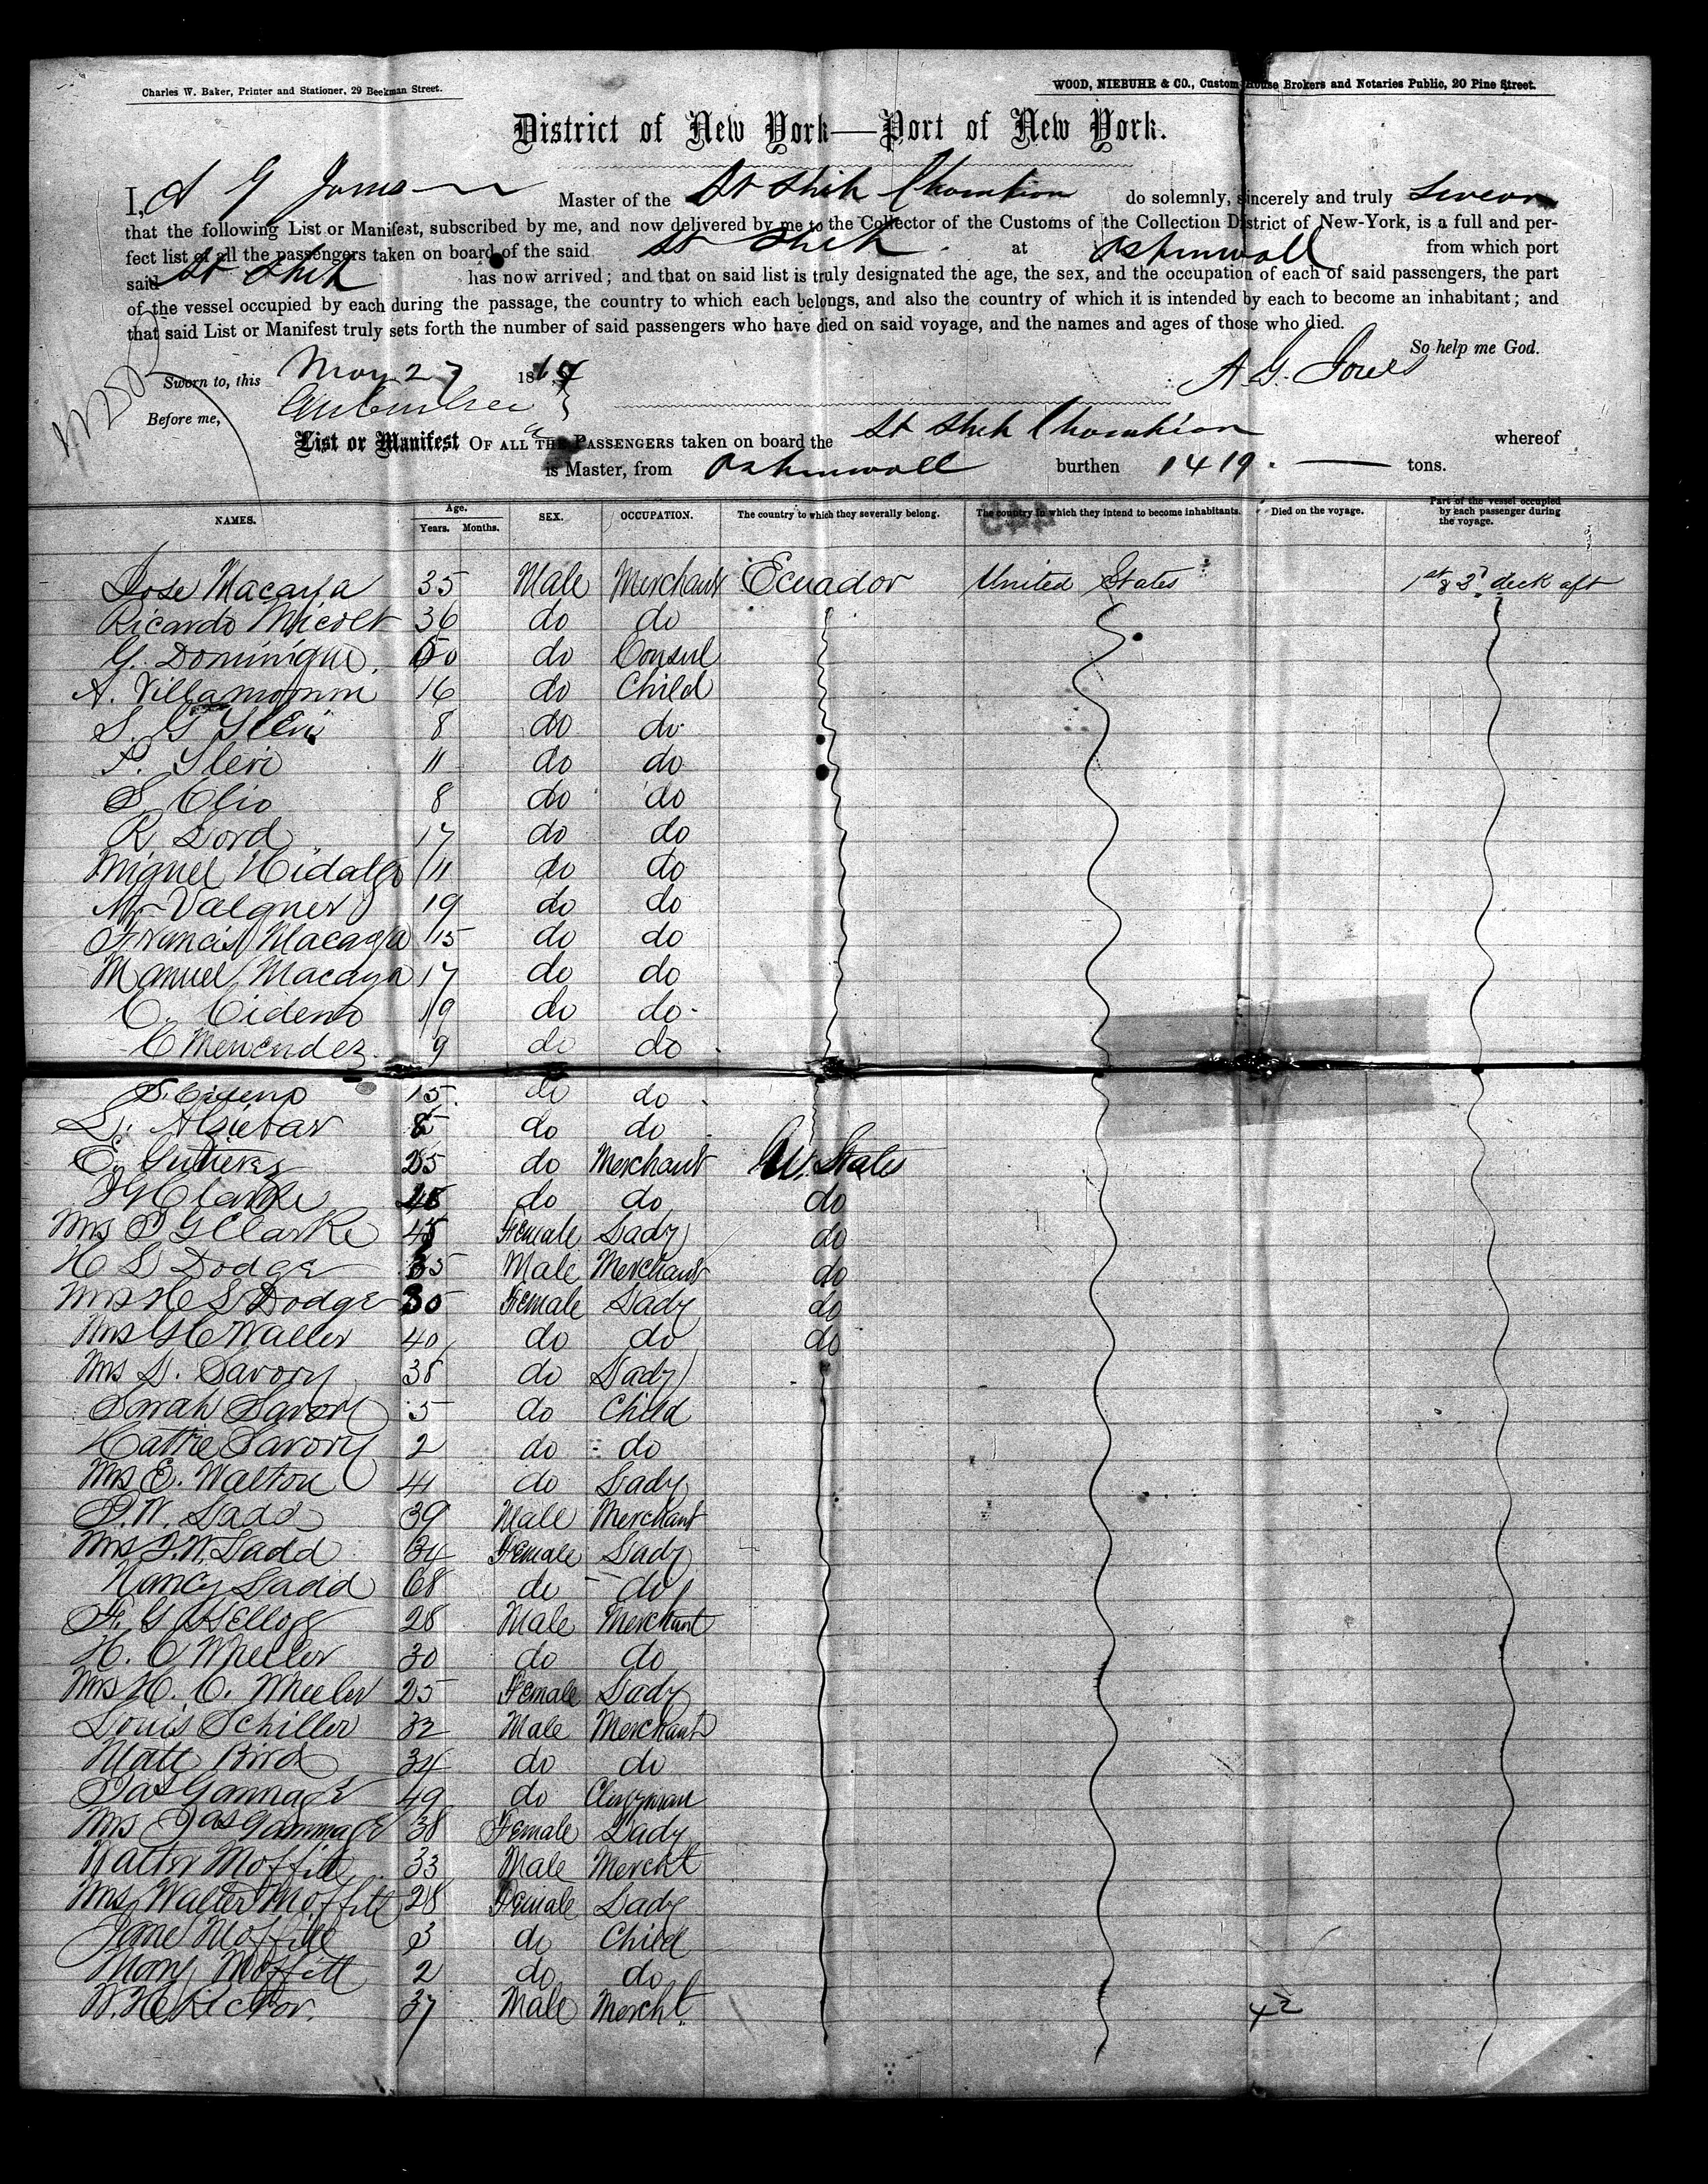 Charles W. Baker, Printer and Stationer, 29 Beekman Street.
WOOD, NIEBUHR & CO., Custom House Brokers and Notaries Public, 20 Pine Street.
District of New York—Port of New York.
I, A G Jones Master of the St Ship Champion do solemnly, sincerely and truly swear
that the following List or Manifest, subscribed by me, and now delivered by me to the Collector of the Customs of the Collection District of New-York, is a full and per-
fect list of all the passengers taken on board of the said St Ship at Aspinwall from which port
said St Ship has now arrived; and that on said list is truly designated the age, the sex, and the occupation of each of said passengers, the part
of the vessel occupied by each during the passage, the country to which each belongs, and also the country of which it is intended by each to become an inhabitant; and
that said List or Manifest truly sets forth the number of said passengers who have died on said voyage, and the names and ages of those who died.
So help me God.
Sworn to, this May 27 186
A. G. Jones
Before me,
List or Manifest OF ALL THE PASSENGERS taken on board the St Ship Champion whereof
is Master, from Aspinwall burthen 1419. tons.
NAMES. Age. Years. Months. SEX. OCCUPATION. The country to which they severally belong. The country in which they intend to become inhabitants. Died on the voyage. Part of the vessel occupied by each passenger during the voyage.
Jose Macaya 35 Male Merchant Ecuador United States 1st & 2d deck aft
Ricardo Micolt 36 do do
G. Dominique 50 do Consul
A. 16 do Child
S. G 8 do do
P. 11 do do
S. Clio 8 do do
R Lord 17 do do
Miguel Hidalgo 11 do do
Mr Valgner 19 do do
Francis Macaya 15 do do
Manuel Macaya 17 do do
C. Cideno 19 do do
C Menendez 9 do do
S. Cideno 15 do do
L. 8 do do
E. Gutierez 25 do Merchant U. States
Clarke do do do
Mrs G Clarke 45 Female Lady do
H S Dodge 35 Male Merchant do
Mrs H S Dodge 30 Female Lady do
Mrs G C Waller 40 do do do
Mrs L. Savory 38 do Lady
Sarah Savory 5 do Child
Hattie Savory 2 do do
Mrs E. Walton 41 do Lady
I. W. Ladd 39 Male Merchant
Mrs I. W. Ladd 34 Female Lady
Nancy Ladd 68 do do
F. G Kellogg 28 Male Merchant
H. C Wheeler 30 do do
Mrs H. C. Wheeler 25 Female Lady
Louis Schiller 32 Male Merchant
Matt Bird 34 do do
Jas Gammage 49 do Clergyman
Mrs Jas Gammage 38 Female Lady
Walter Moffitt 33 Male Mercht
Mrs Walter Moffitt 28 Female Lady
Jane Moffitt 3 do Child
Mary Moffitt 2 do do
W. H Rector. 37 Male Mercht.
42